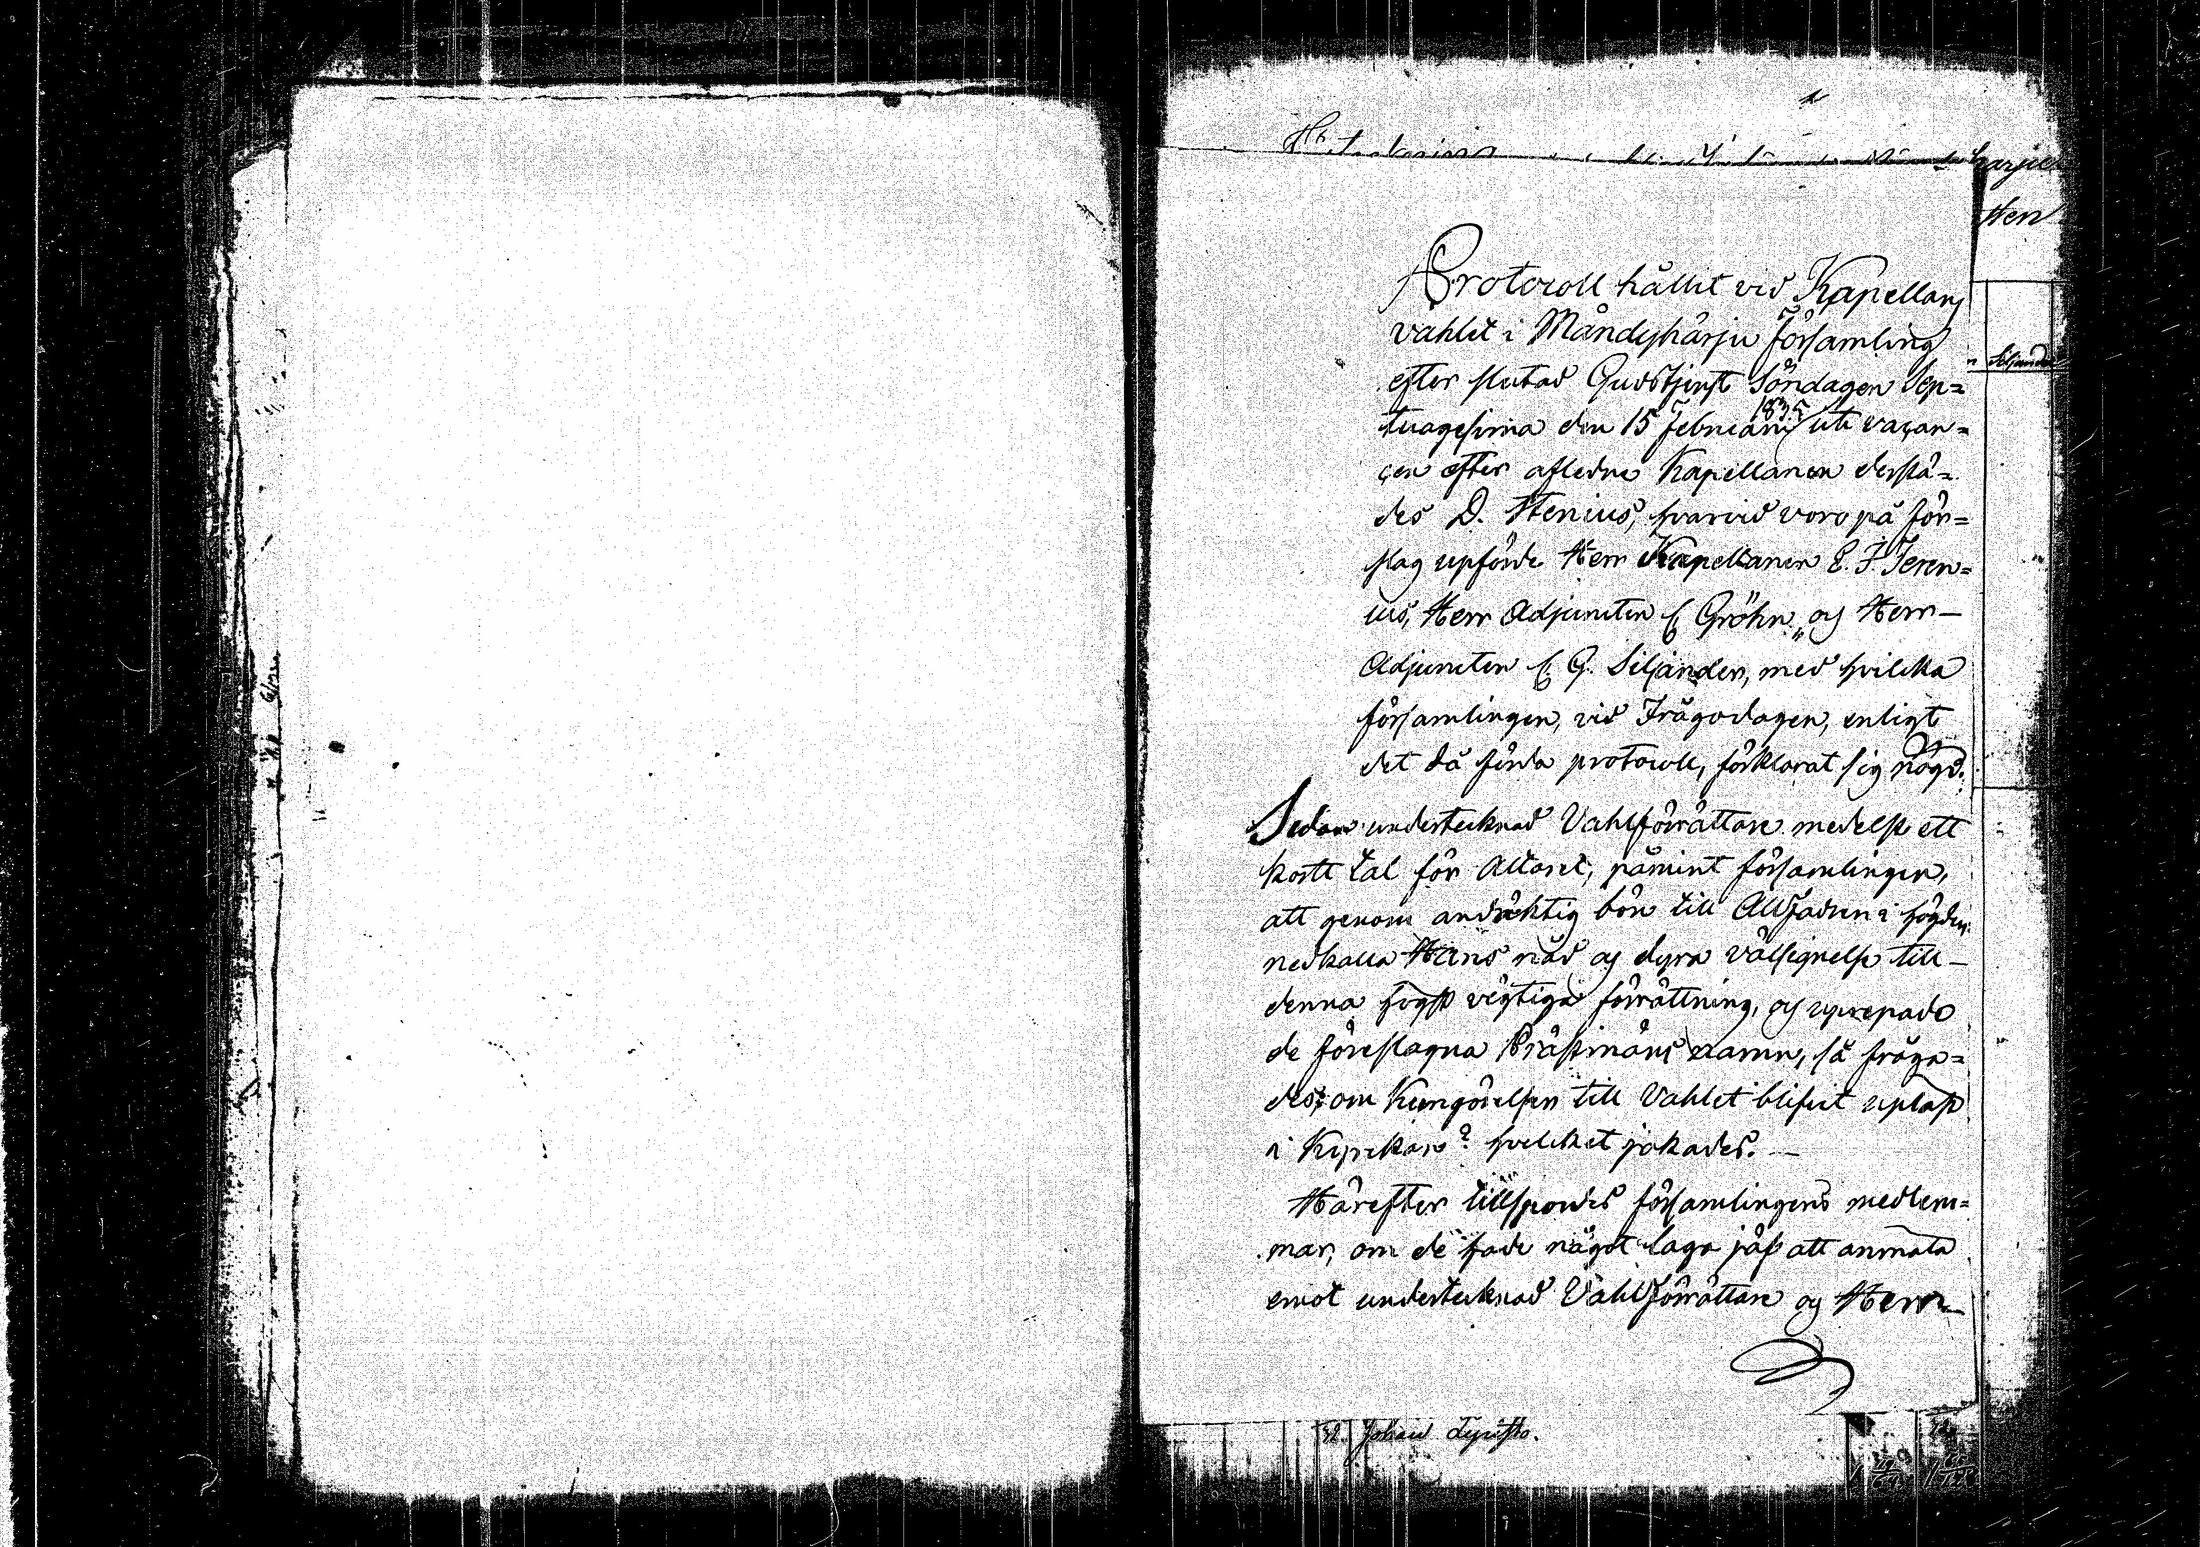 Protocoll hållit vid Kapellans
vahlet i Mändyharju Församling
efter slutad Gudstjenst Söndagen Sep=
tuagesima den 15 Februarii 1835 uti vaçan=
çen efter afledne Kapellanen derstä=
des D. Stenius, hvarvid voro på för=
slag upförde Herr Kapellanen E. F. Teren=
ius, Herr Adjuncten C. Gröhn, och Herr
Adjuncten C. G. Siljander, med hvilcka
församlingen, vid Frågodagen, enligt
det då förda protocoll, förklarat sig nögd.
Sedan undertecknad Vahlförrättare medelst ett
kort tal för Altaret, påmint församlingen,
att genom andäktig bön till Allfadren i högden
nedkalla Hans nåd och dyra välsignelse till
denna högst vigtiga förrättning, och uprepade
de föreslagna Prästmäns namn, så fråga=
des; om Kungörelsen till Vahlet blifvit upläst
i Kyrckan? hvilcket jakades.
Härefter tillspordes församlingens medlem=
mar, om de hade något laga jäf att anmäla
emot undertecknad Vahlförrättare och Herr
Siljander
32. Johan